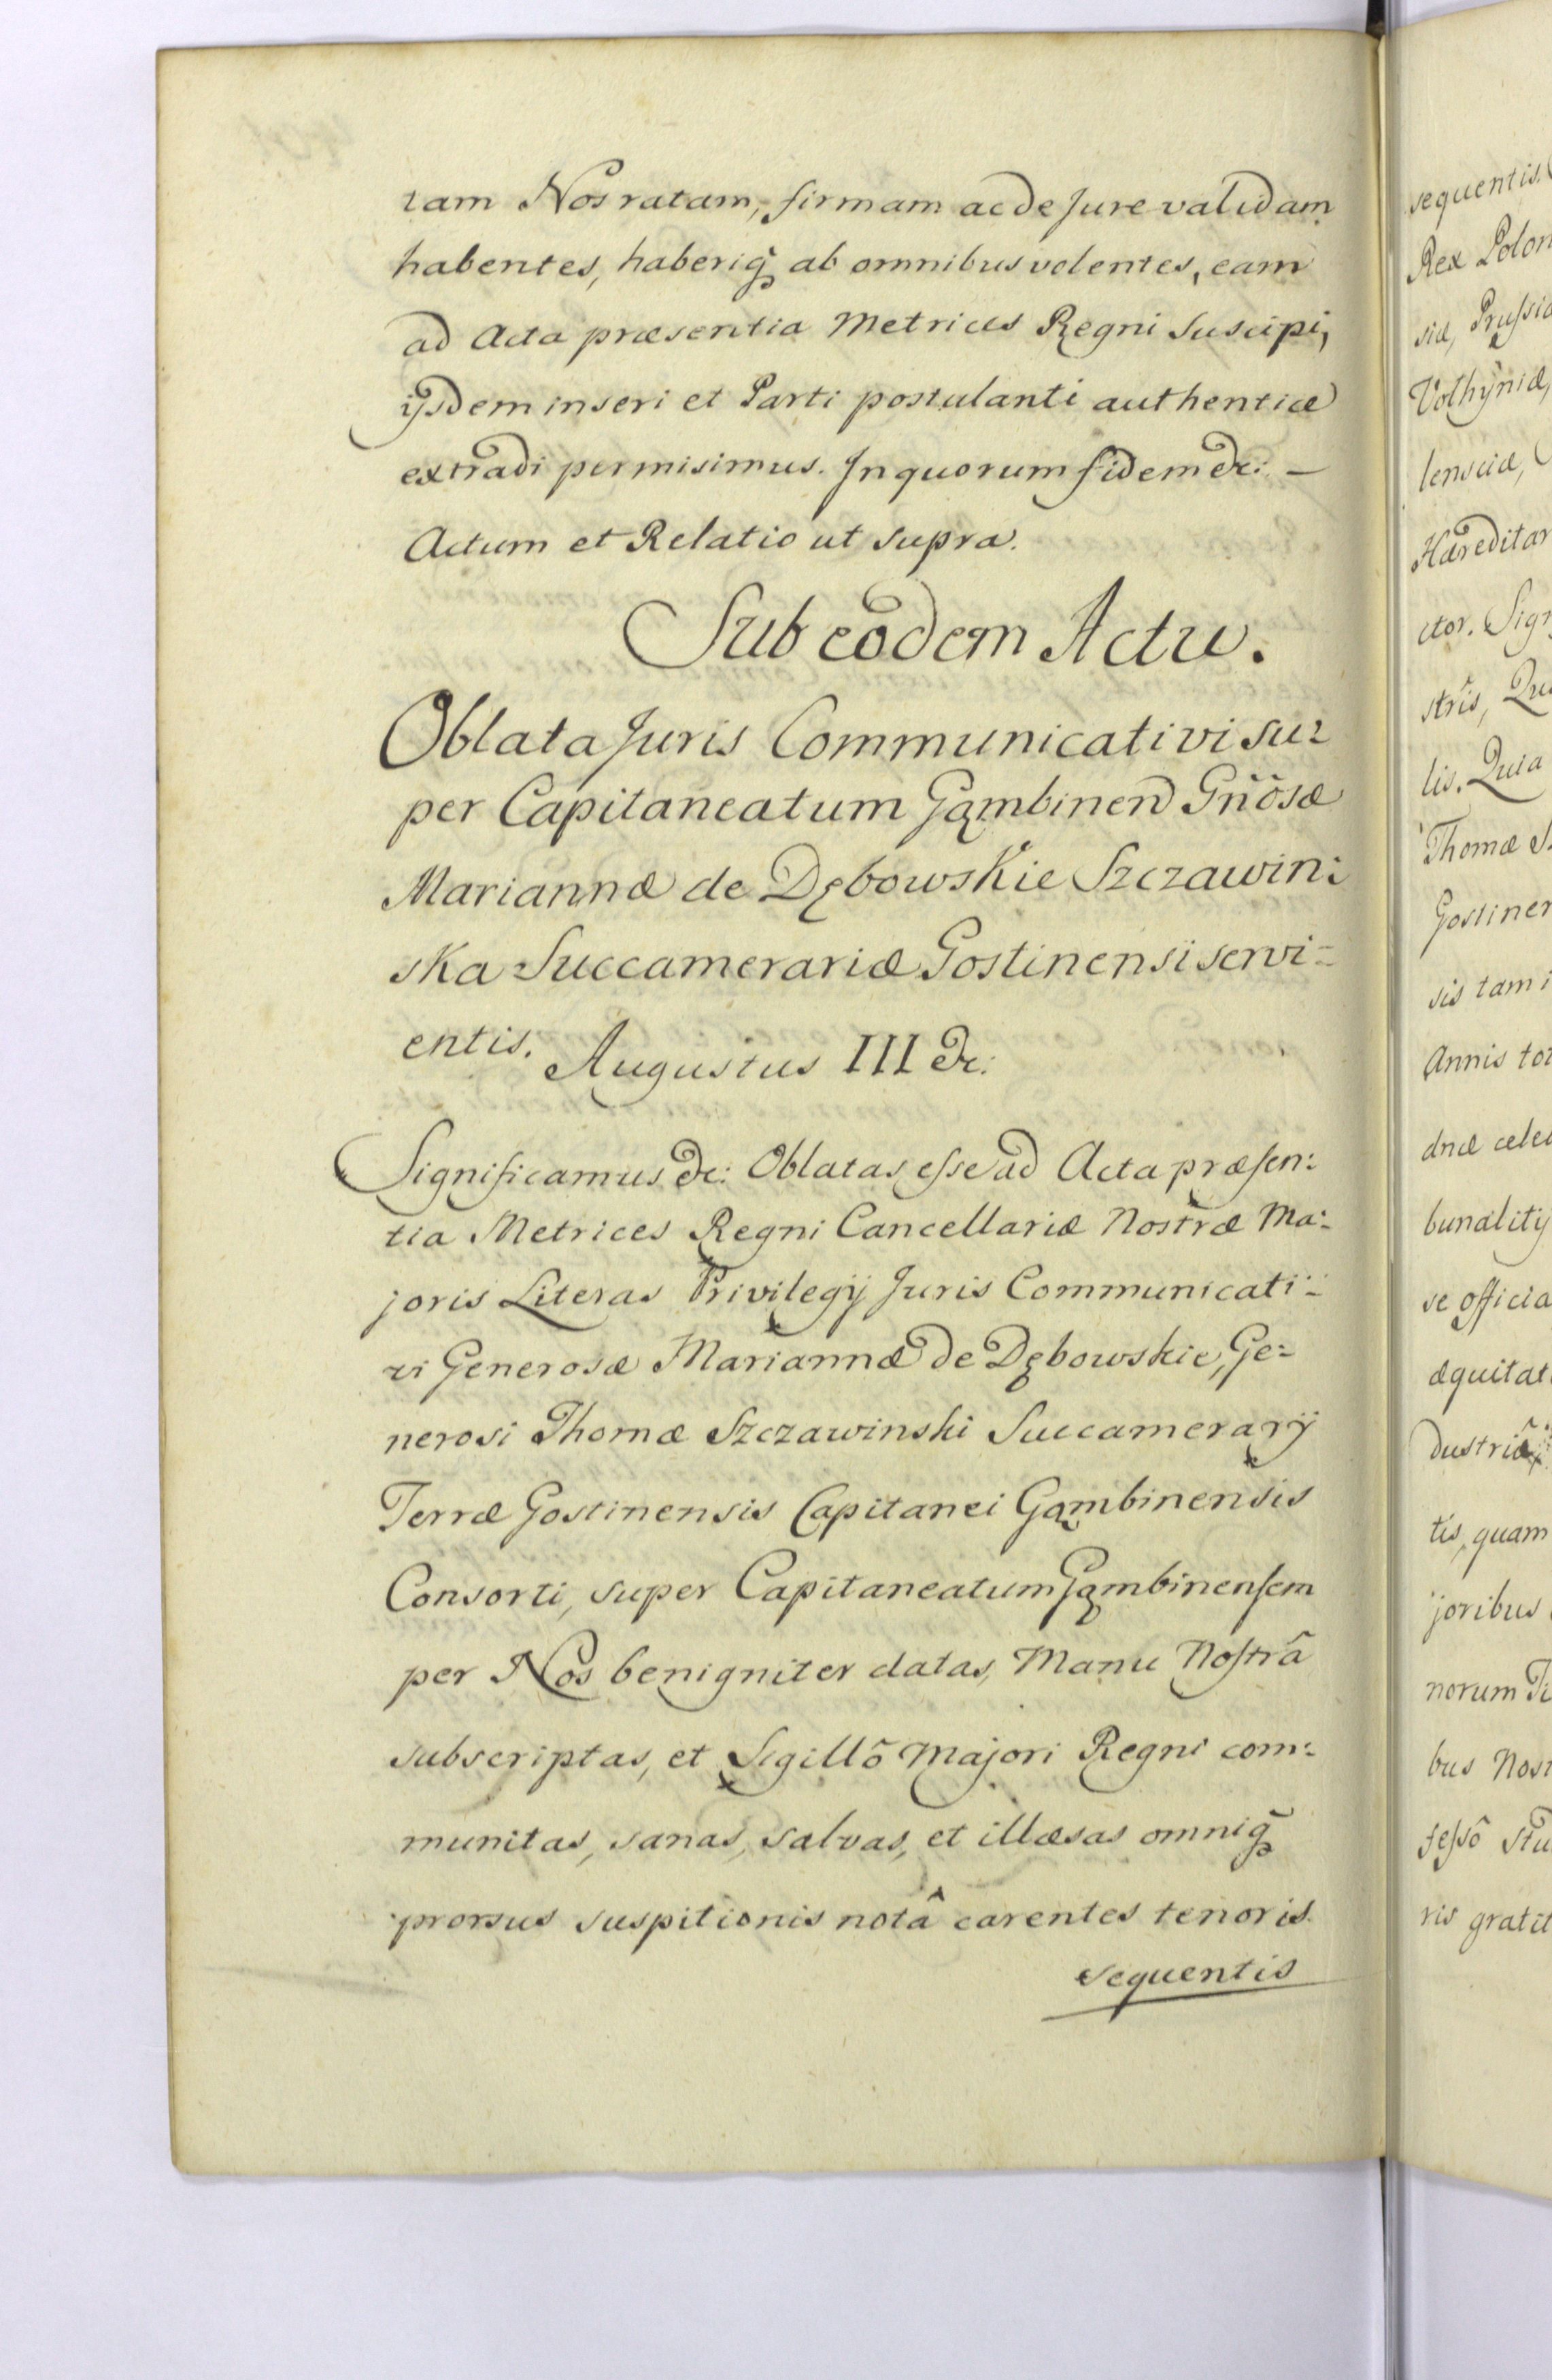 tam Nos ratam, firmam ac de Jure validam
habentes, haberiq̃ ab omnibus volentes, eam
ad Acta præsentia Metrices Regni Suscipi,
ijsdem inseri et Parti postulanti authentice
extradi permisimus. In quorum fidem &c: –
Actum et Relatio ut supra.
Sub eodem Actu.
Oblata Juris Communicativi su=
per Capitaneatum Gąmbinen Gñosæ
Mariannæ de Dębowskie Szczawin:
ska Succamerariæ Gostinensi servi=
entis.
Augustus III &c:
Significamus &c: Oblatas eſse ad Acta præſen:
tia Metrices Regni Cancellariæ Nostræ Ma:
joris Literas Privilegij Juris Communicati:
vi Generosæ Mariannæ de Dębowskie, Ge=
nerosi Thomæ Szczawinski Succamerarij
Terræ Gostinensis Capitanei Gąmbinensis
Consorti, super Capitaneatum Gąmbinenſem
per Nos benigniter datas, Manu Noſtrâ
subscriptas, et Sigillô Majori Regni com:
munitas, sanas, salvas, et illæsas omniq̃
prorsus suspitionis notâ carentes tenoris
sequentis
sequentis
Rex Polon
siæ, Pruſsiæ
Volhyniæ,
lensciæ,
Hæreditar
ctor. Sign
stris, Qu
lis. Quia
Thomæ S
Gostinen
sis tam i
Annis tot
dnæ cele
bunality
se officia
æquitat
dustriâ
tis, quam
joribus
norum Ti
bus Nost
feſsô Stu
ris gratit